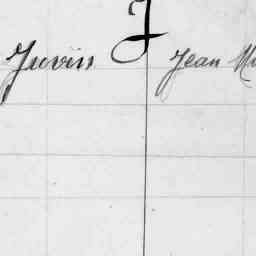 J
Juvin Jean